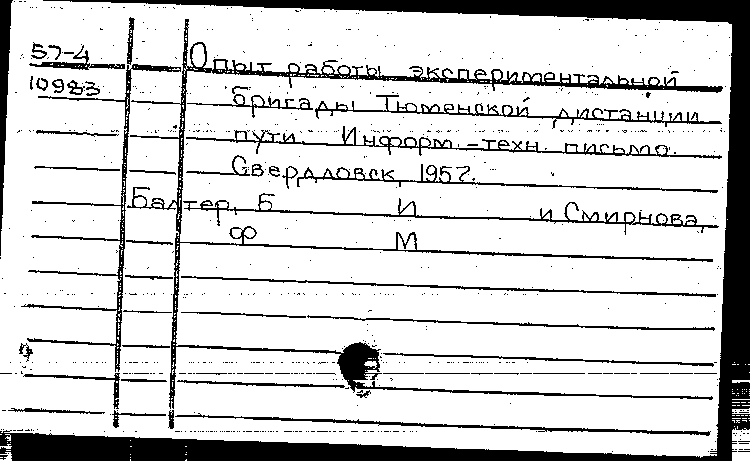 57-4 Опыт работы экспериментальной
10983 бригады Тюменской дистанции
пути. Информ.-техн. письмо.
Свердловск, 1957.
Балтер, Б И и Смирнова,
Ф М